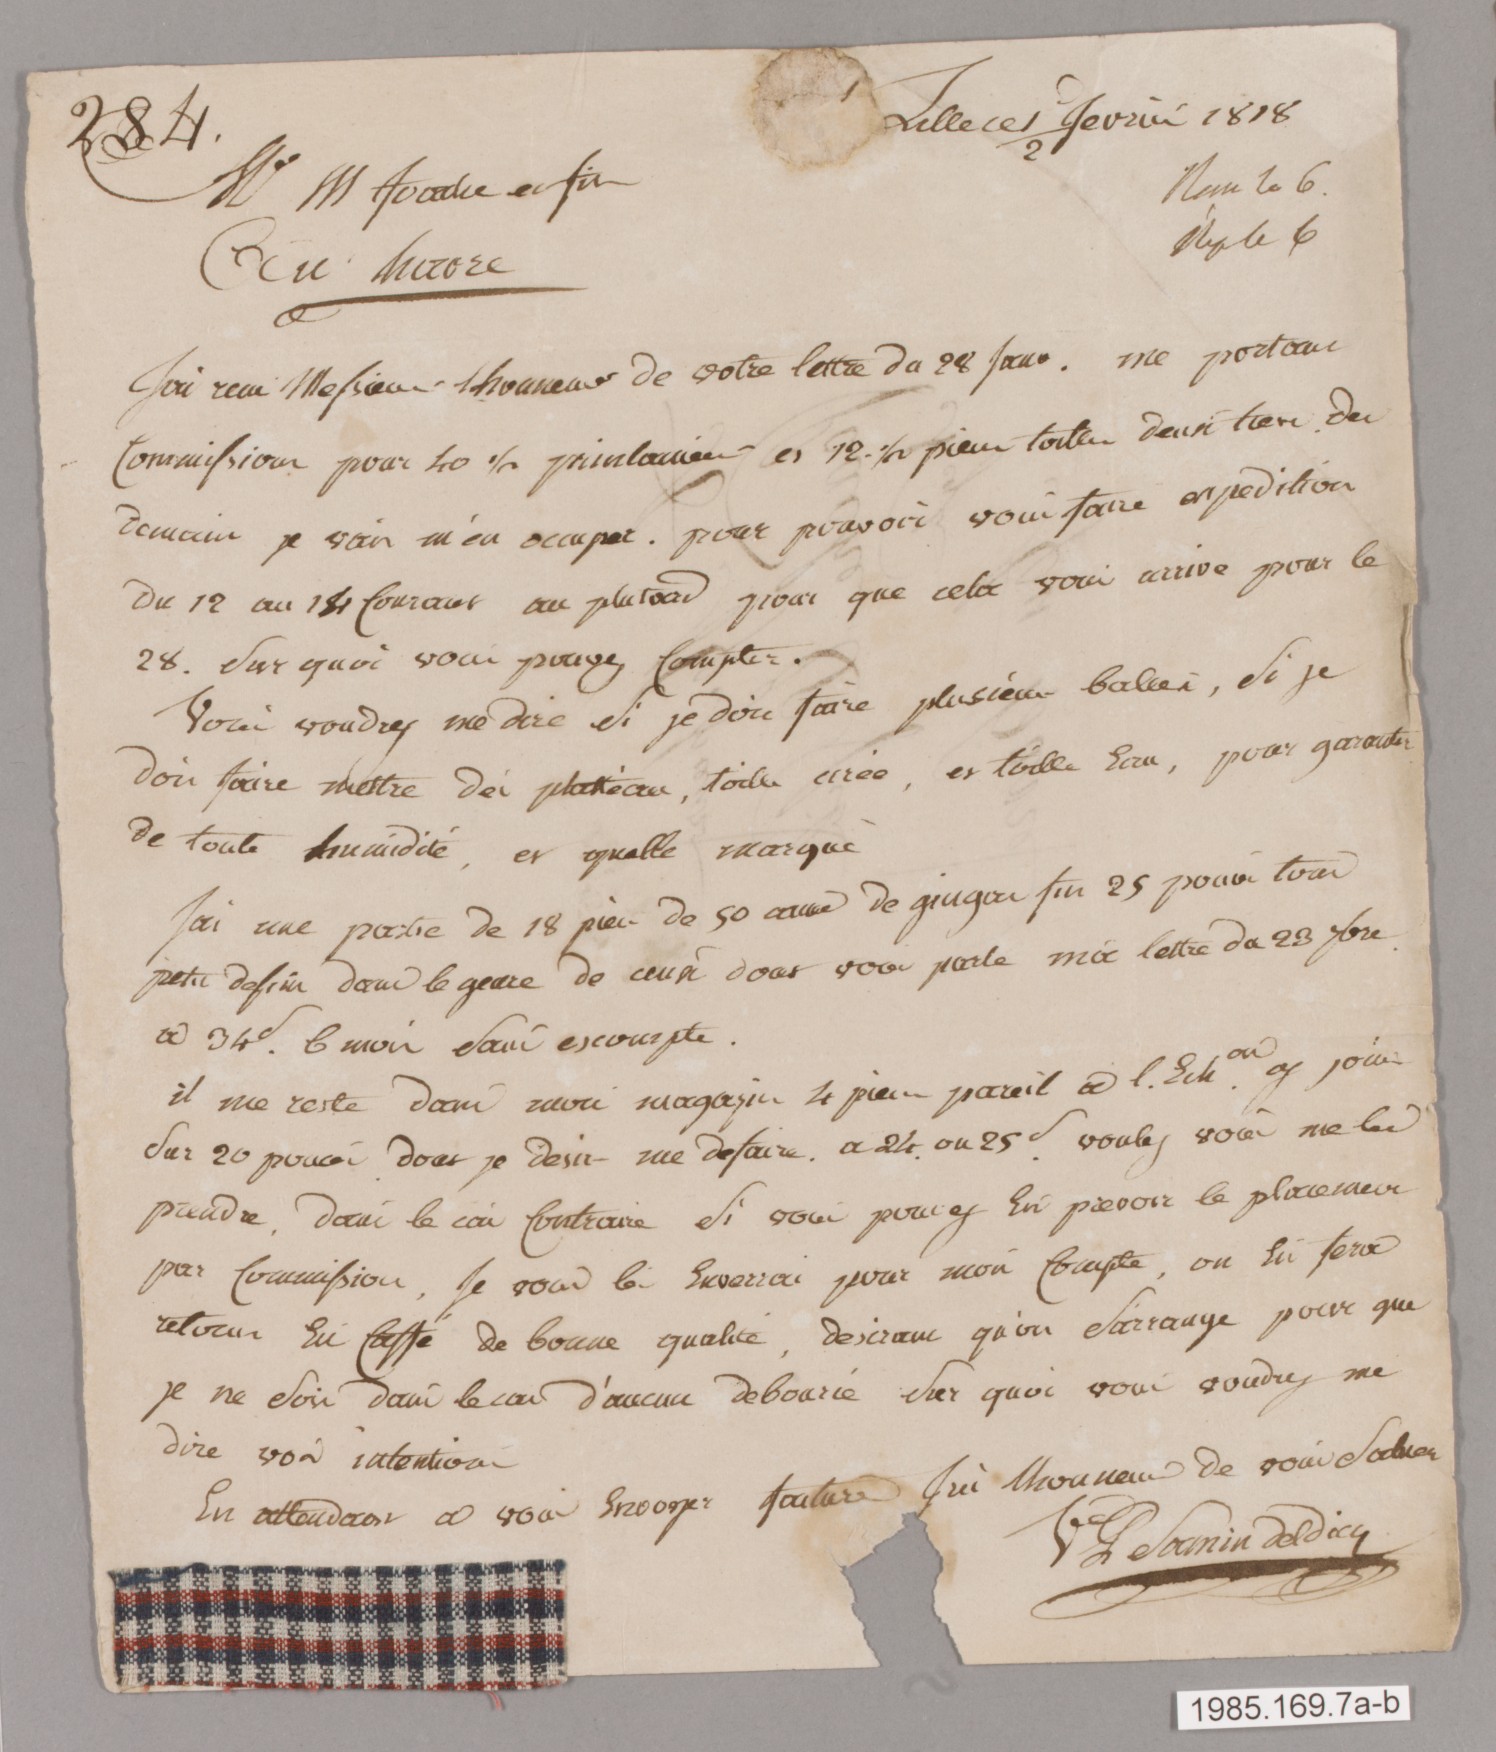 284.
Lille ce 1/2 fevrier 1818
Mr M foache et fils
Au havre
Rem le 6.
Rep le 6
J'ai recu Messieurs l'honneur de votre lettre du 28 Janv. me portant
Commission pour 40 p/s printanieres et 12 p/s pieces toilles deux tiers. Des
demain je vais m'en occuper. pour pouvoir vous faire expedition
du 12 au 14 Courant au plutard pour que cela vous arrive pour le
28. Sur quoi vous pouvez Compter.
Vous voudrez me dire Si je dois faire plusieurs balles, Si je
dois faire mettre des platteau, toille cirée, et toille Eau, pour garantir
de toute humidité, et quelle marque
J'ai une partie de 18 pieces de 50 aunes de gingas fin 25 pouces tous
petits dessins dans le genre de ceux dont vous parle ma lettre du 23 9bre
a 34s. 6 mois Sans escompte.
il me reste dans mon magazin 4 pieces pareil a l. Echon. cy joint
Sur 20 pouces dont je desire me defaire. a 24. ou 25s. voulez vous me les
prendre, dans le cas Contraire Si vous pouvez En prevoir le placement
par Commission, Je vous les Enverrai pour mon Compte, on En fera
retour En Caffé de bonne qualité, desirant qu'on S'arrange pour que
je ne Sois dans le cas d'aucun debourcé Sur quoi vous voudrez me
dire vos intentions
En attendant a vous Envoyer facture J'ai l'honneur de vous Saluer
Ve Lesoanin deldicq
1985.169.7a-b